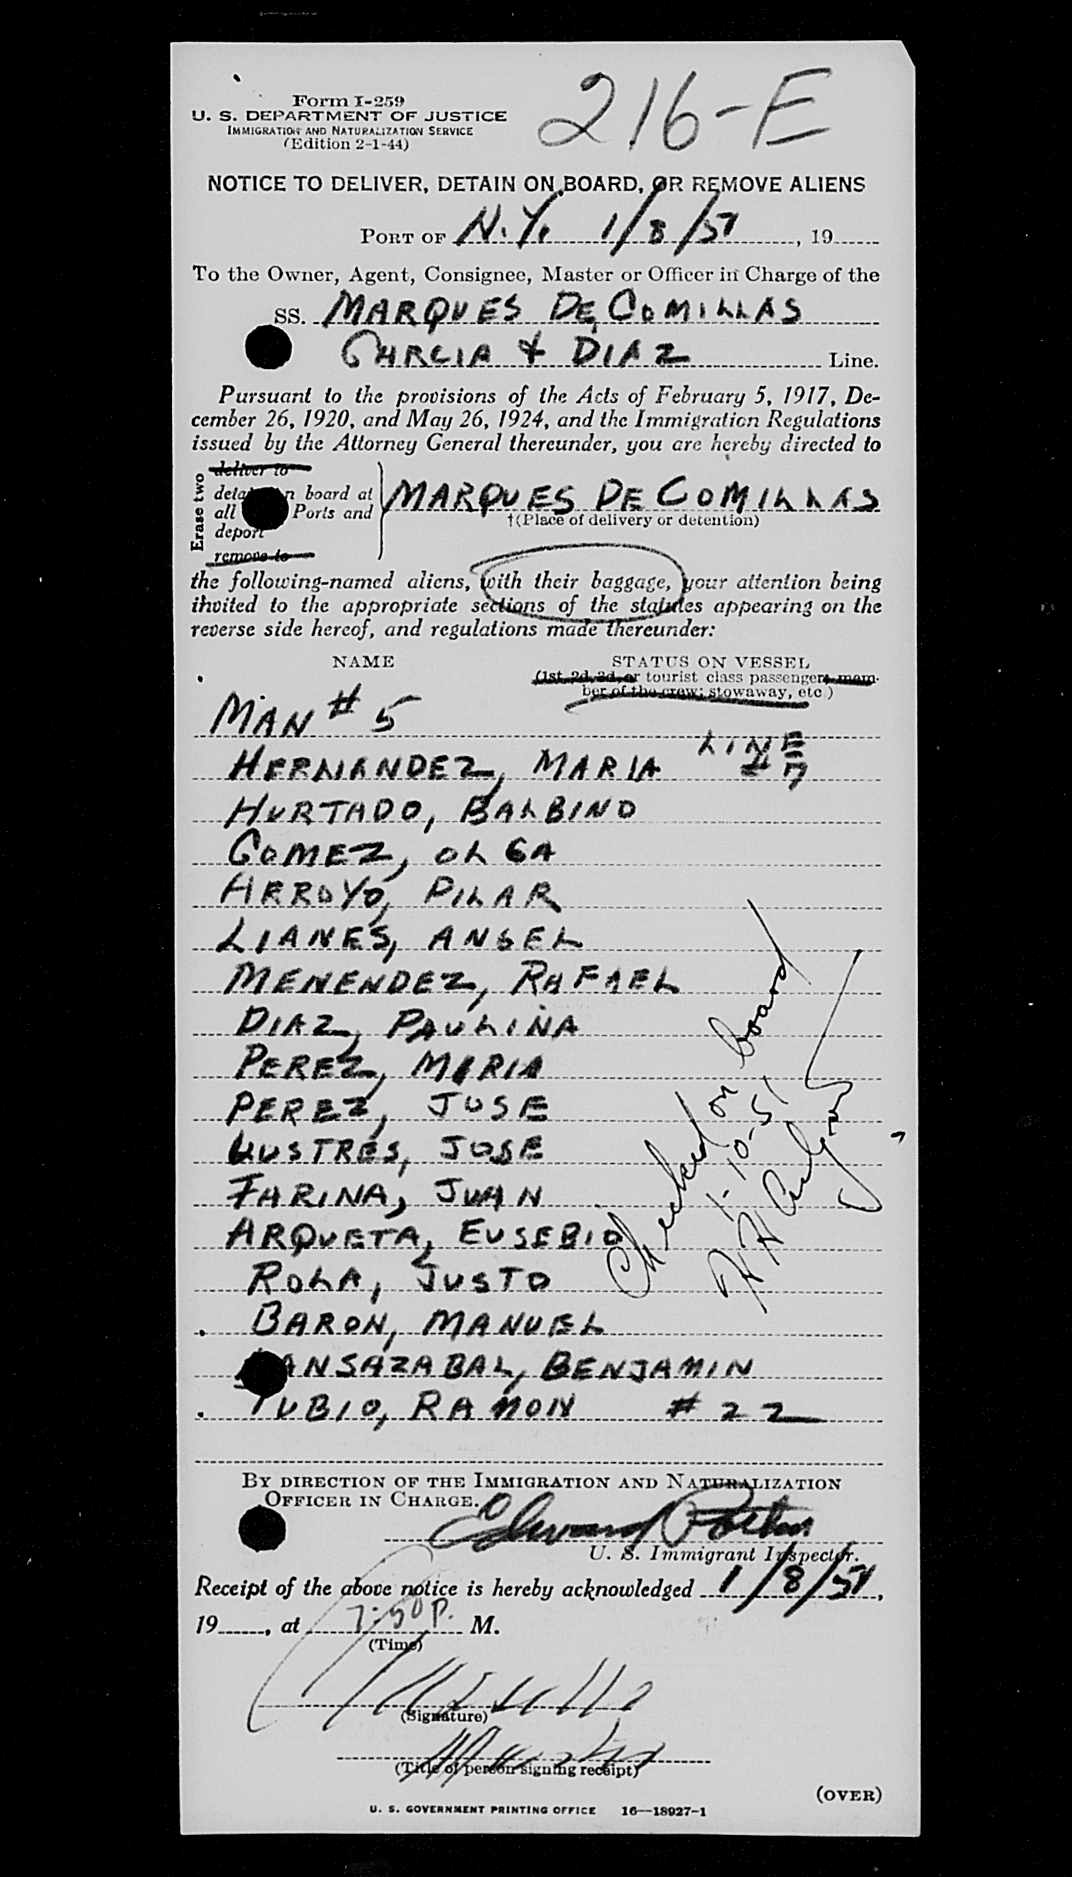 216-E
Form I-259
U. S. DEPARTMENT OF JUSTICE
IMMIGRATION AND NATURALIZATION SERVICE
(Edition 2-1-44)
NOTICE TO DELIVER, DETAIN ON BOARD, OR REMOVE ALIENS
PORT OF N.Y. 1/8/51, 19
To the Owner, Agent, Consignee, Master or Officer in Charge of the
SS. MARQUES DE COMILLAS
GARCIA & DIAZ Line.
Pursuant to the provisions of the Acts of February 5, 1917, De-
cember 26, 1920, and May 26, 1924, and the Immigration Regulations
issued by the Attorney General thereunder, you are hereby directed to
Erase two
deliver to
board at
all Ports and
deport
remove to
MARQUES DE COMILLAS
†(Place of delivery or detention)
the following-named aliens, with their baggage, your attention being
invited to the appropriate sections of the statutes appearing on the
reverse side hereof, and regulations made thereunder:
NAME STATUS ON VESSEL
(1st, 2d, 3d, or tourist class passenger, mem-
ber of the crew; stowaway, etc)
MAN # 5
HERNANDEZ, MARIA LINE # 7
HURTADO, BALBINO
GOMEZ, OLGA
ARROYO, PILAR
LIANES, ANGEL
MENENDEZ, RAFAEL
DIAZ, PAULINA
PEREZ, MARIA
PEREZ, JOSE
JOSE
FARINA, JUAN
ARQUETA, EUSEBIO
ROLA, JUSTO
BARON, MANUEL
BENJAMIN
TUBIO, RAMON # 22
Checked on board
1-10-51
BY DIRECTION OF THE IMMIGRATION AND NATURALIZATION
OFFICER IN CHARGE.
Edward
U. S. Immigrant Inspector.
Receipt of the above notice is hereby acknowledged 1/8/51,
19, at 7:50 P. M.
(Time)
(Signature)
(Title of person signing receipt)
(OVER)
U. S. GOVERNMENT PRINTING OFFICE 16—18927-1